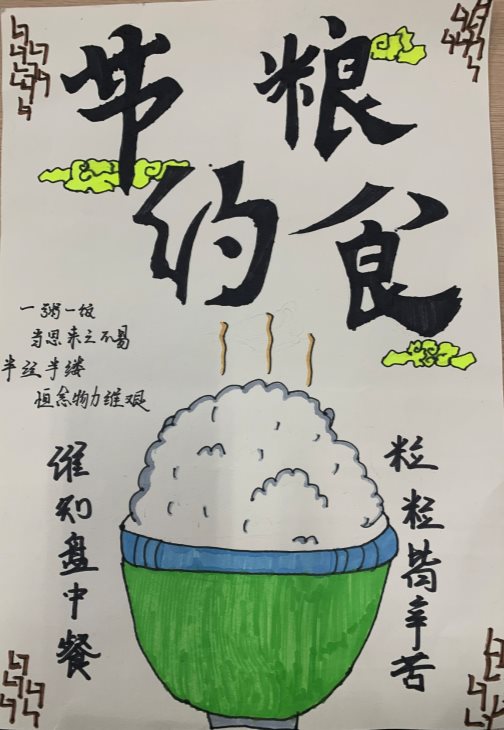 节约
粮食
一粥一饭
当思来之不易
半丝半缕
恒念物力维艰
谁知盘中餐
粒粒皆辛苦